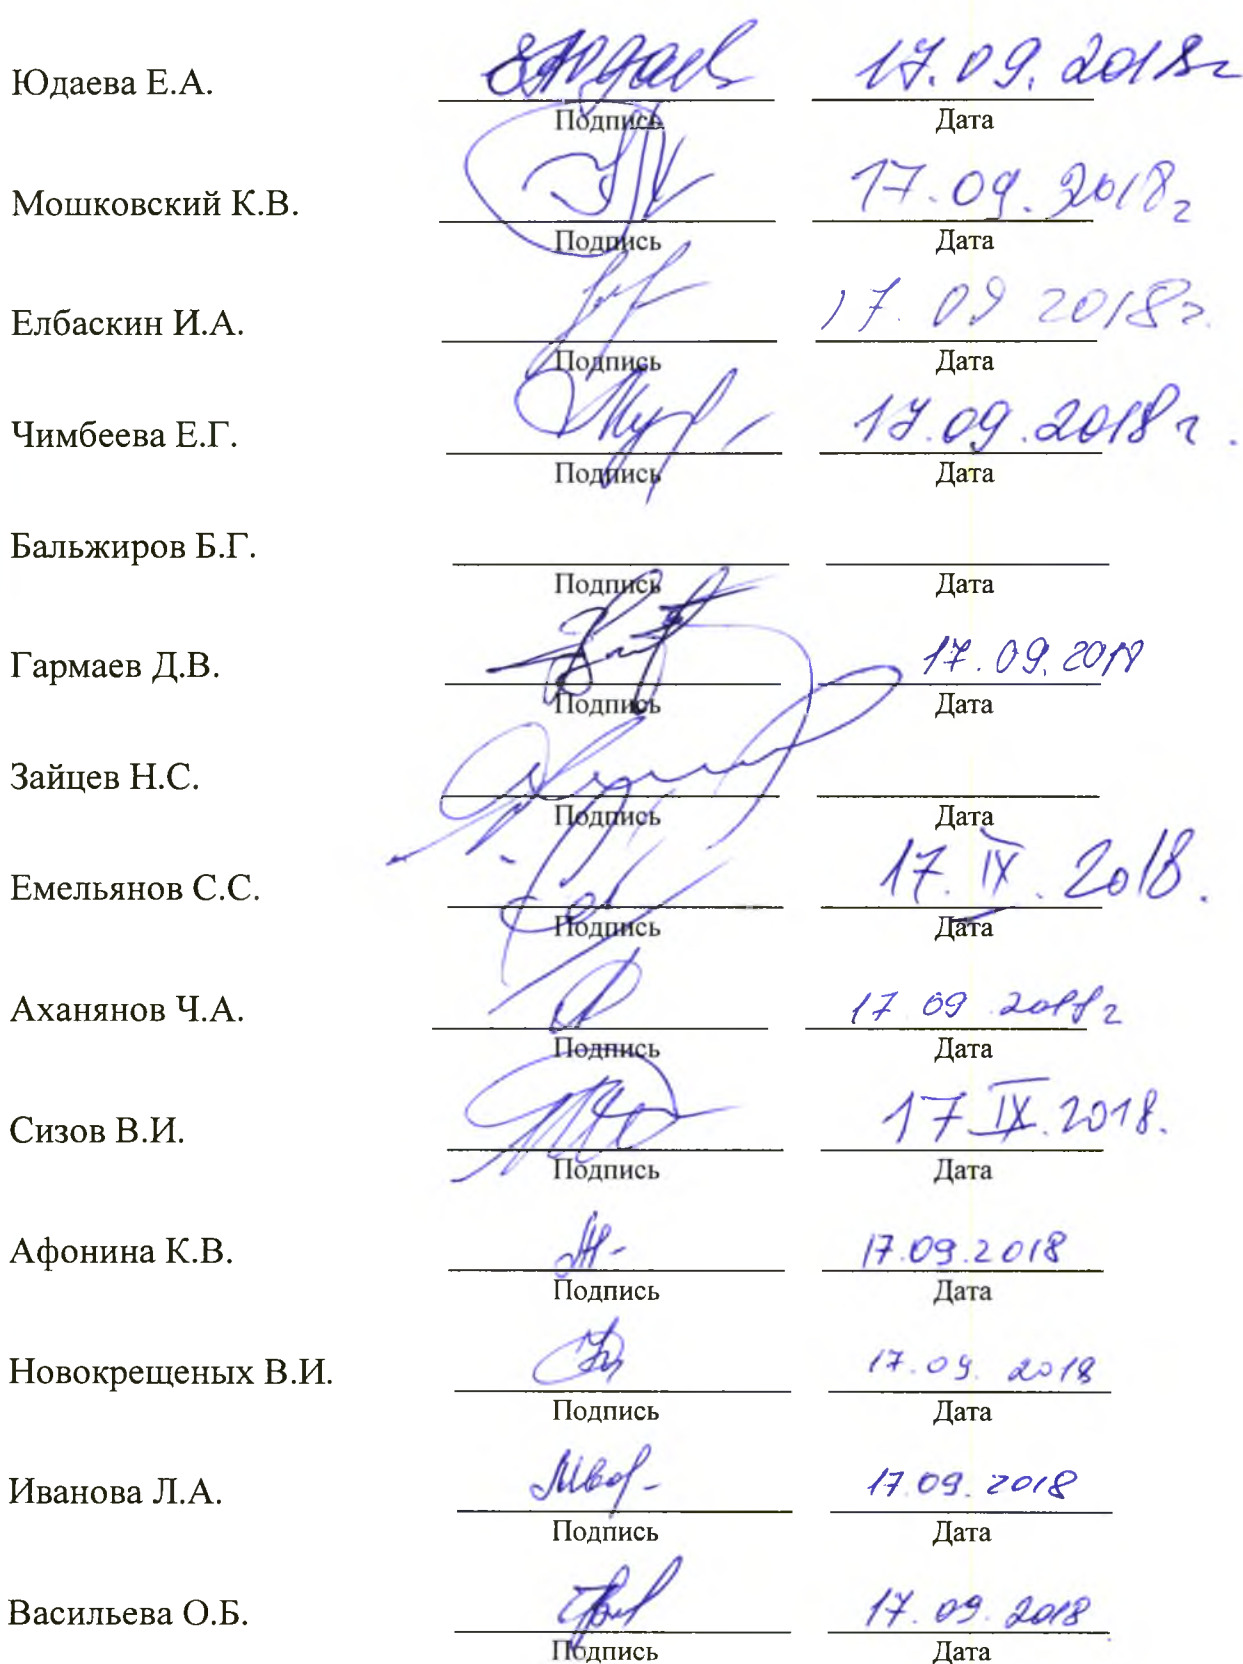 Юдаева Е.А. 17.09.2018г
Подпись Дата
Мошковский К.В. 17.09.2018г
Подпись Дата
Елбаскин И.А. 17.09 2018г.
Подпись Дата
Чимбеева Е.Г. 17.09.2018г.
Подпись Дата
Бальжиров Б.Г.
Подпись Дата
Гармаев Д.В. 17.09.2018
Подпись Дата
Зайцев Н.С.
Подпись Дата
Емельянов С.С. 17.IX.2018.
Подпись Дата
Аханянов Ч.А. 17 09 2018г
Подпись Дата
Сизов В.И. 17 IX.2018.
Подпись Дата
Афонина К.В. 17.09.2018
Подпись Дата
Новокрещеных В.И. 17.09.2018
Подпись Дата
Иванова Л.А. 17.09.2018
Подпись Дата
Васильева О.Б. 17.09.2018
Подпись Дата